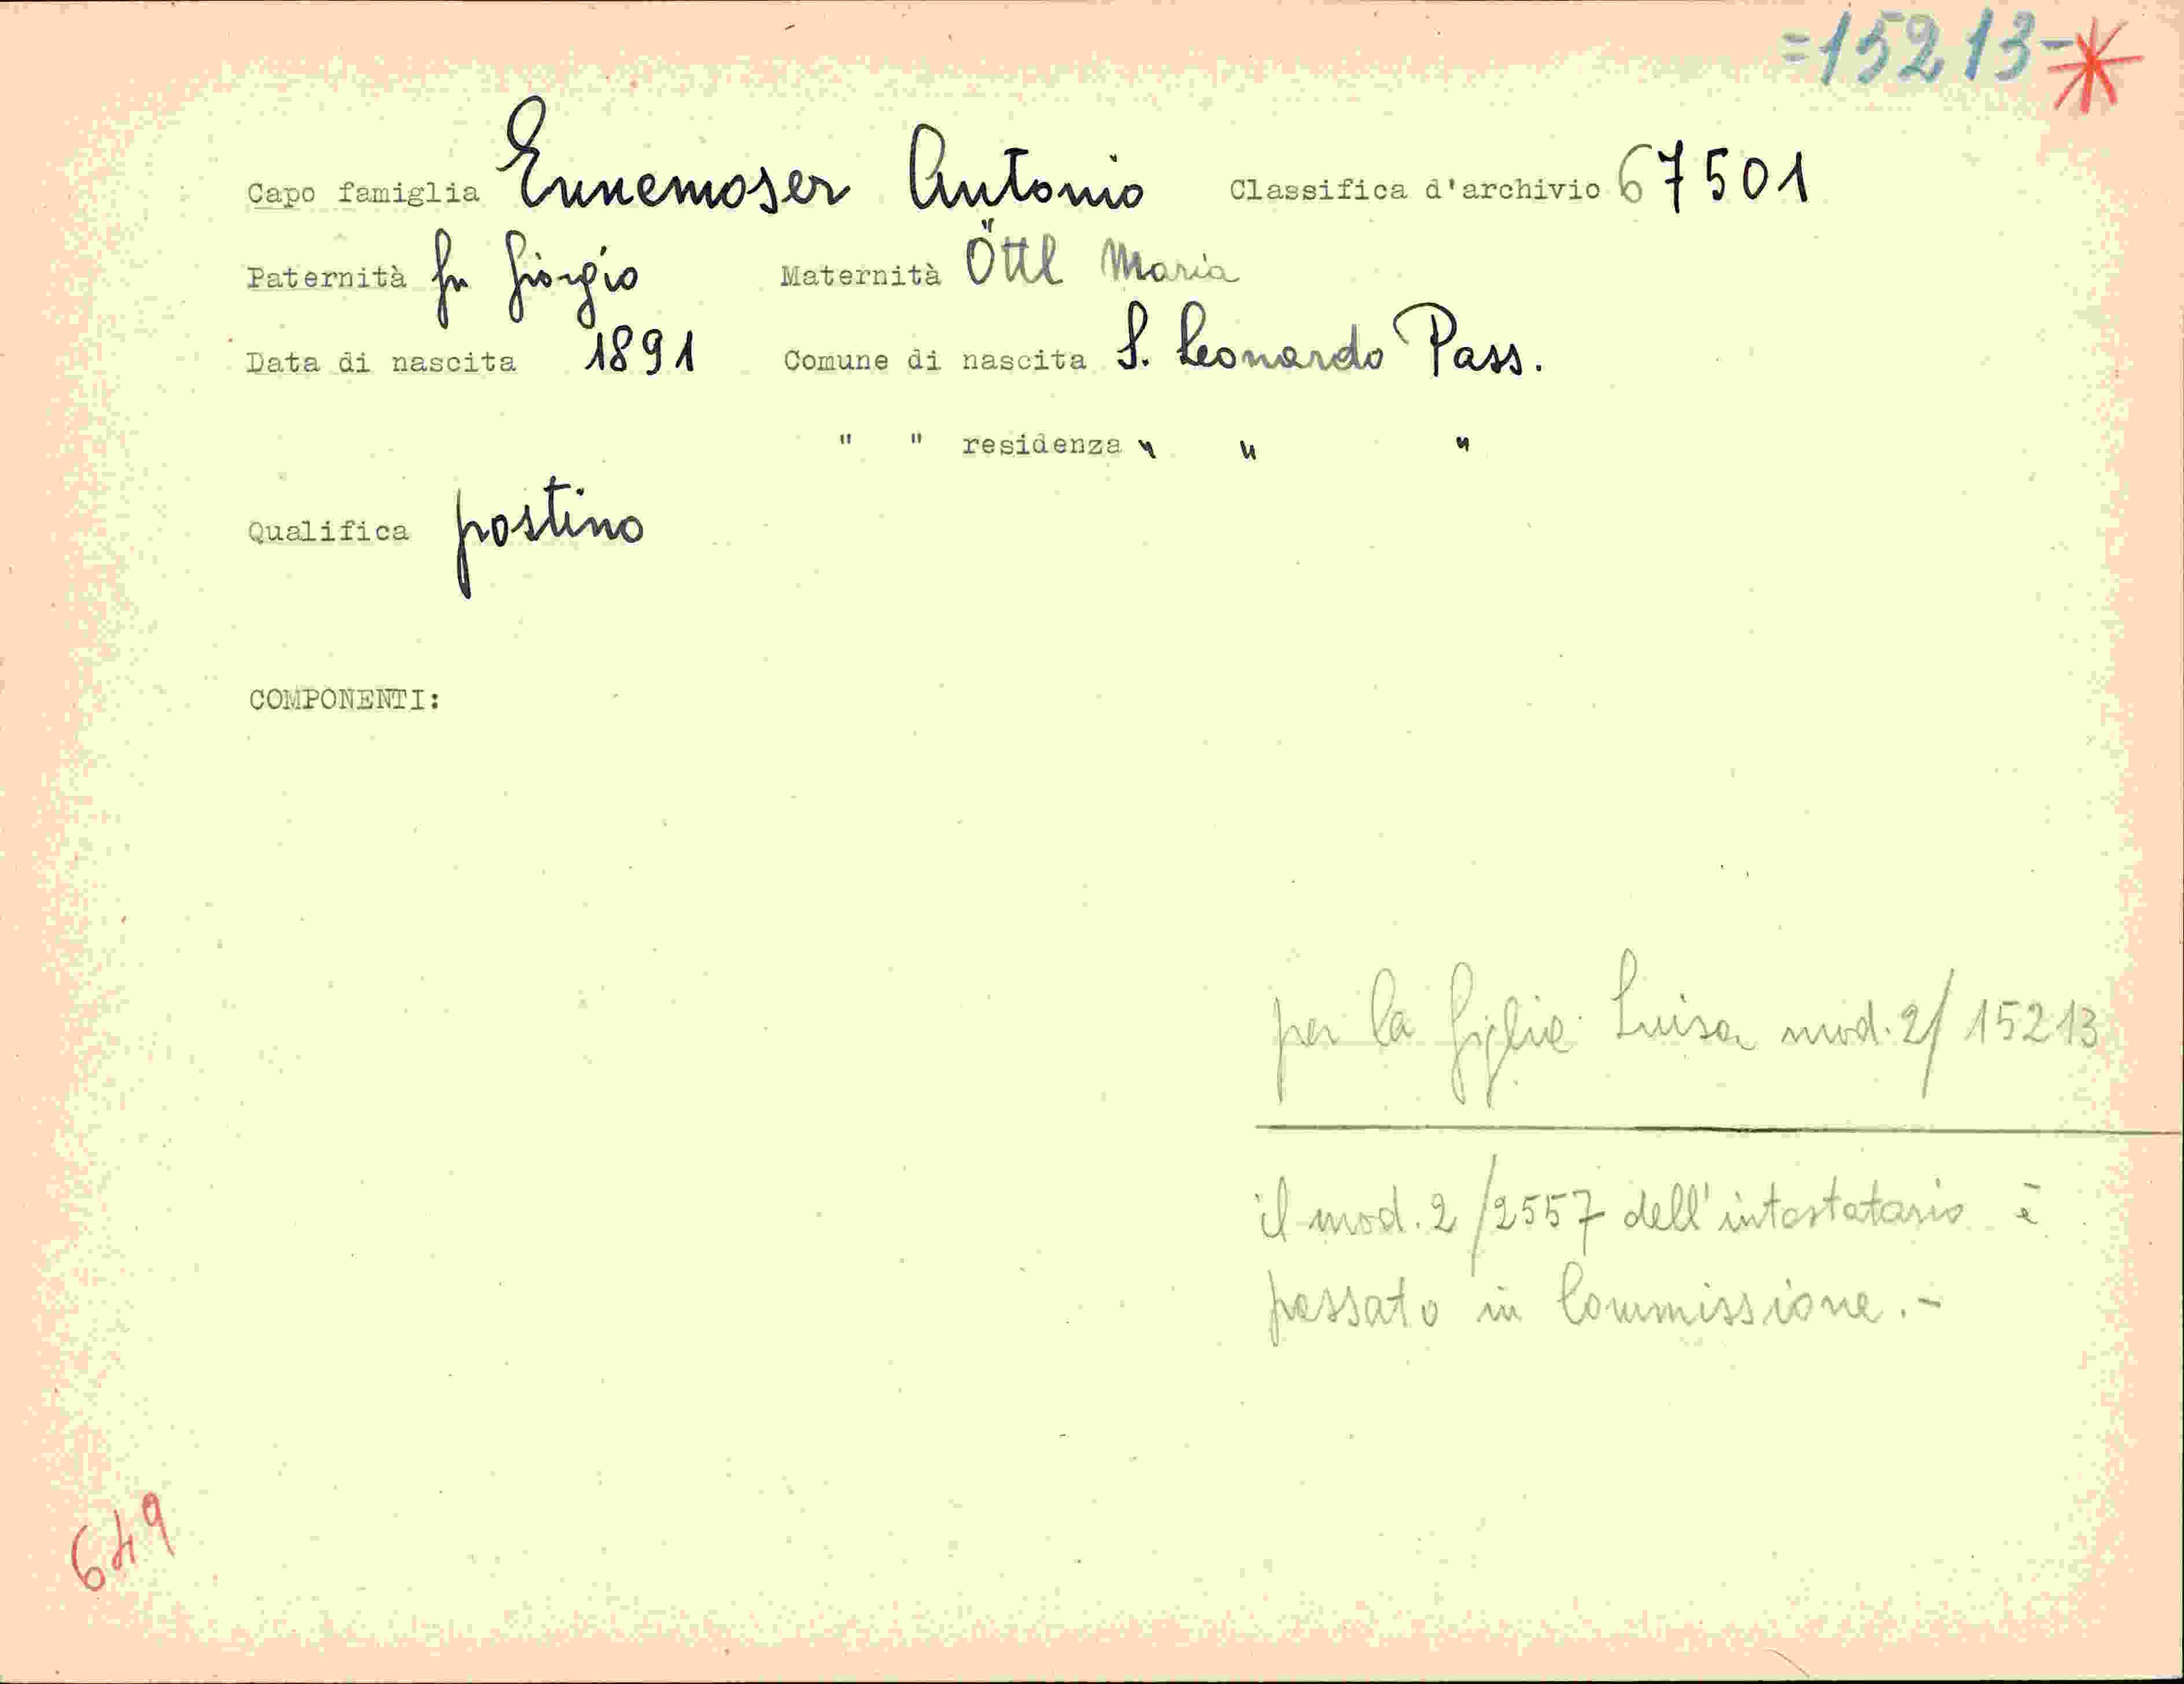 =15213-
Capo famiglia Ennemoser Antonio Classifica d'archivio 67501
Paternità fu Giorgio Maternità Öttl Maria
Data di nascita 1891 Comune di nascita S. Leonardo Pass.
" " residenza " " "
Qualifica postino
COMPONENTI:
per la figlia Luisa mod. 2/15213
il mod. 2/2557 dell'intestatario è
passato in Commissione.-
649